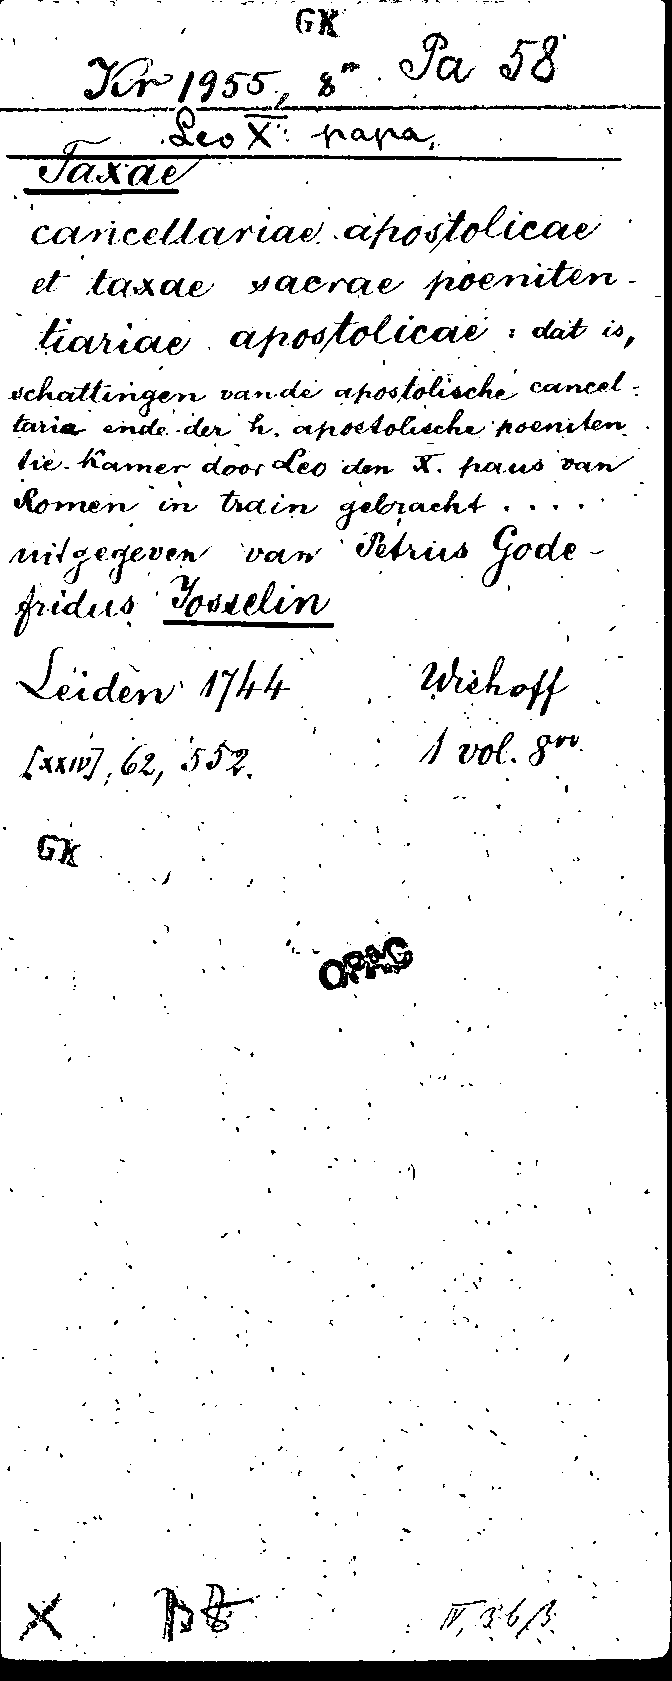 GK
Kr 1955, 8º Pa 58
Leo X: papa,
Taxae
cancellariae apostolicae
et taxae sacrae poeniten-
tiariae apostolicae: dat is,
schattingen van de apostolische cancel-
laria ende der h. apostolische poeniten
tie-Kamer door Leo den X. paus van
Romen in train gebracht ....
uitgegeven van Petrus Gode-
fridus Josselin
Leiden 1744 Wishoff
[XXIV], 62, 552. 1 vol. 8vo
GK
OPAC
X